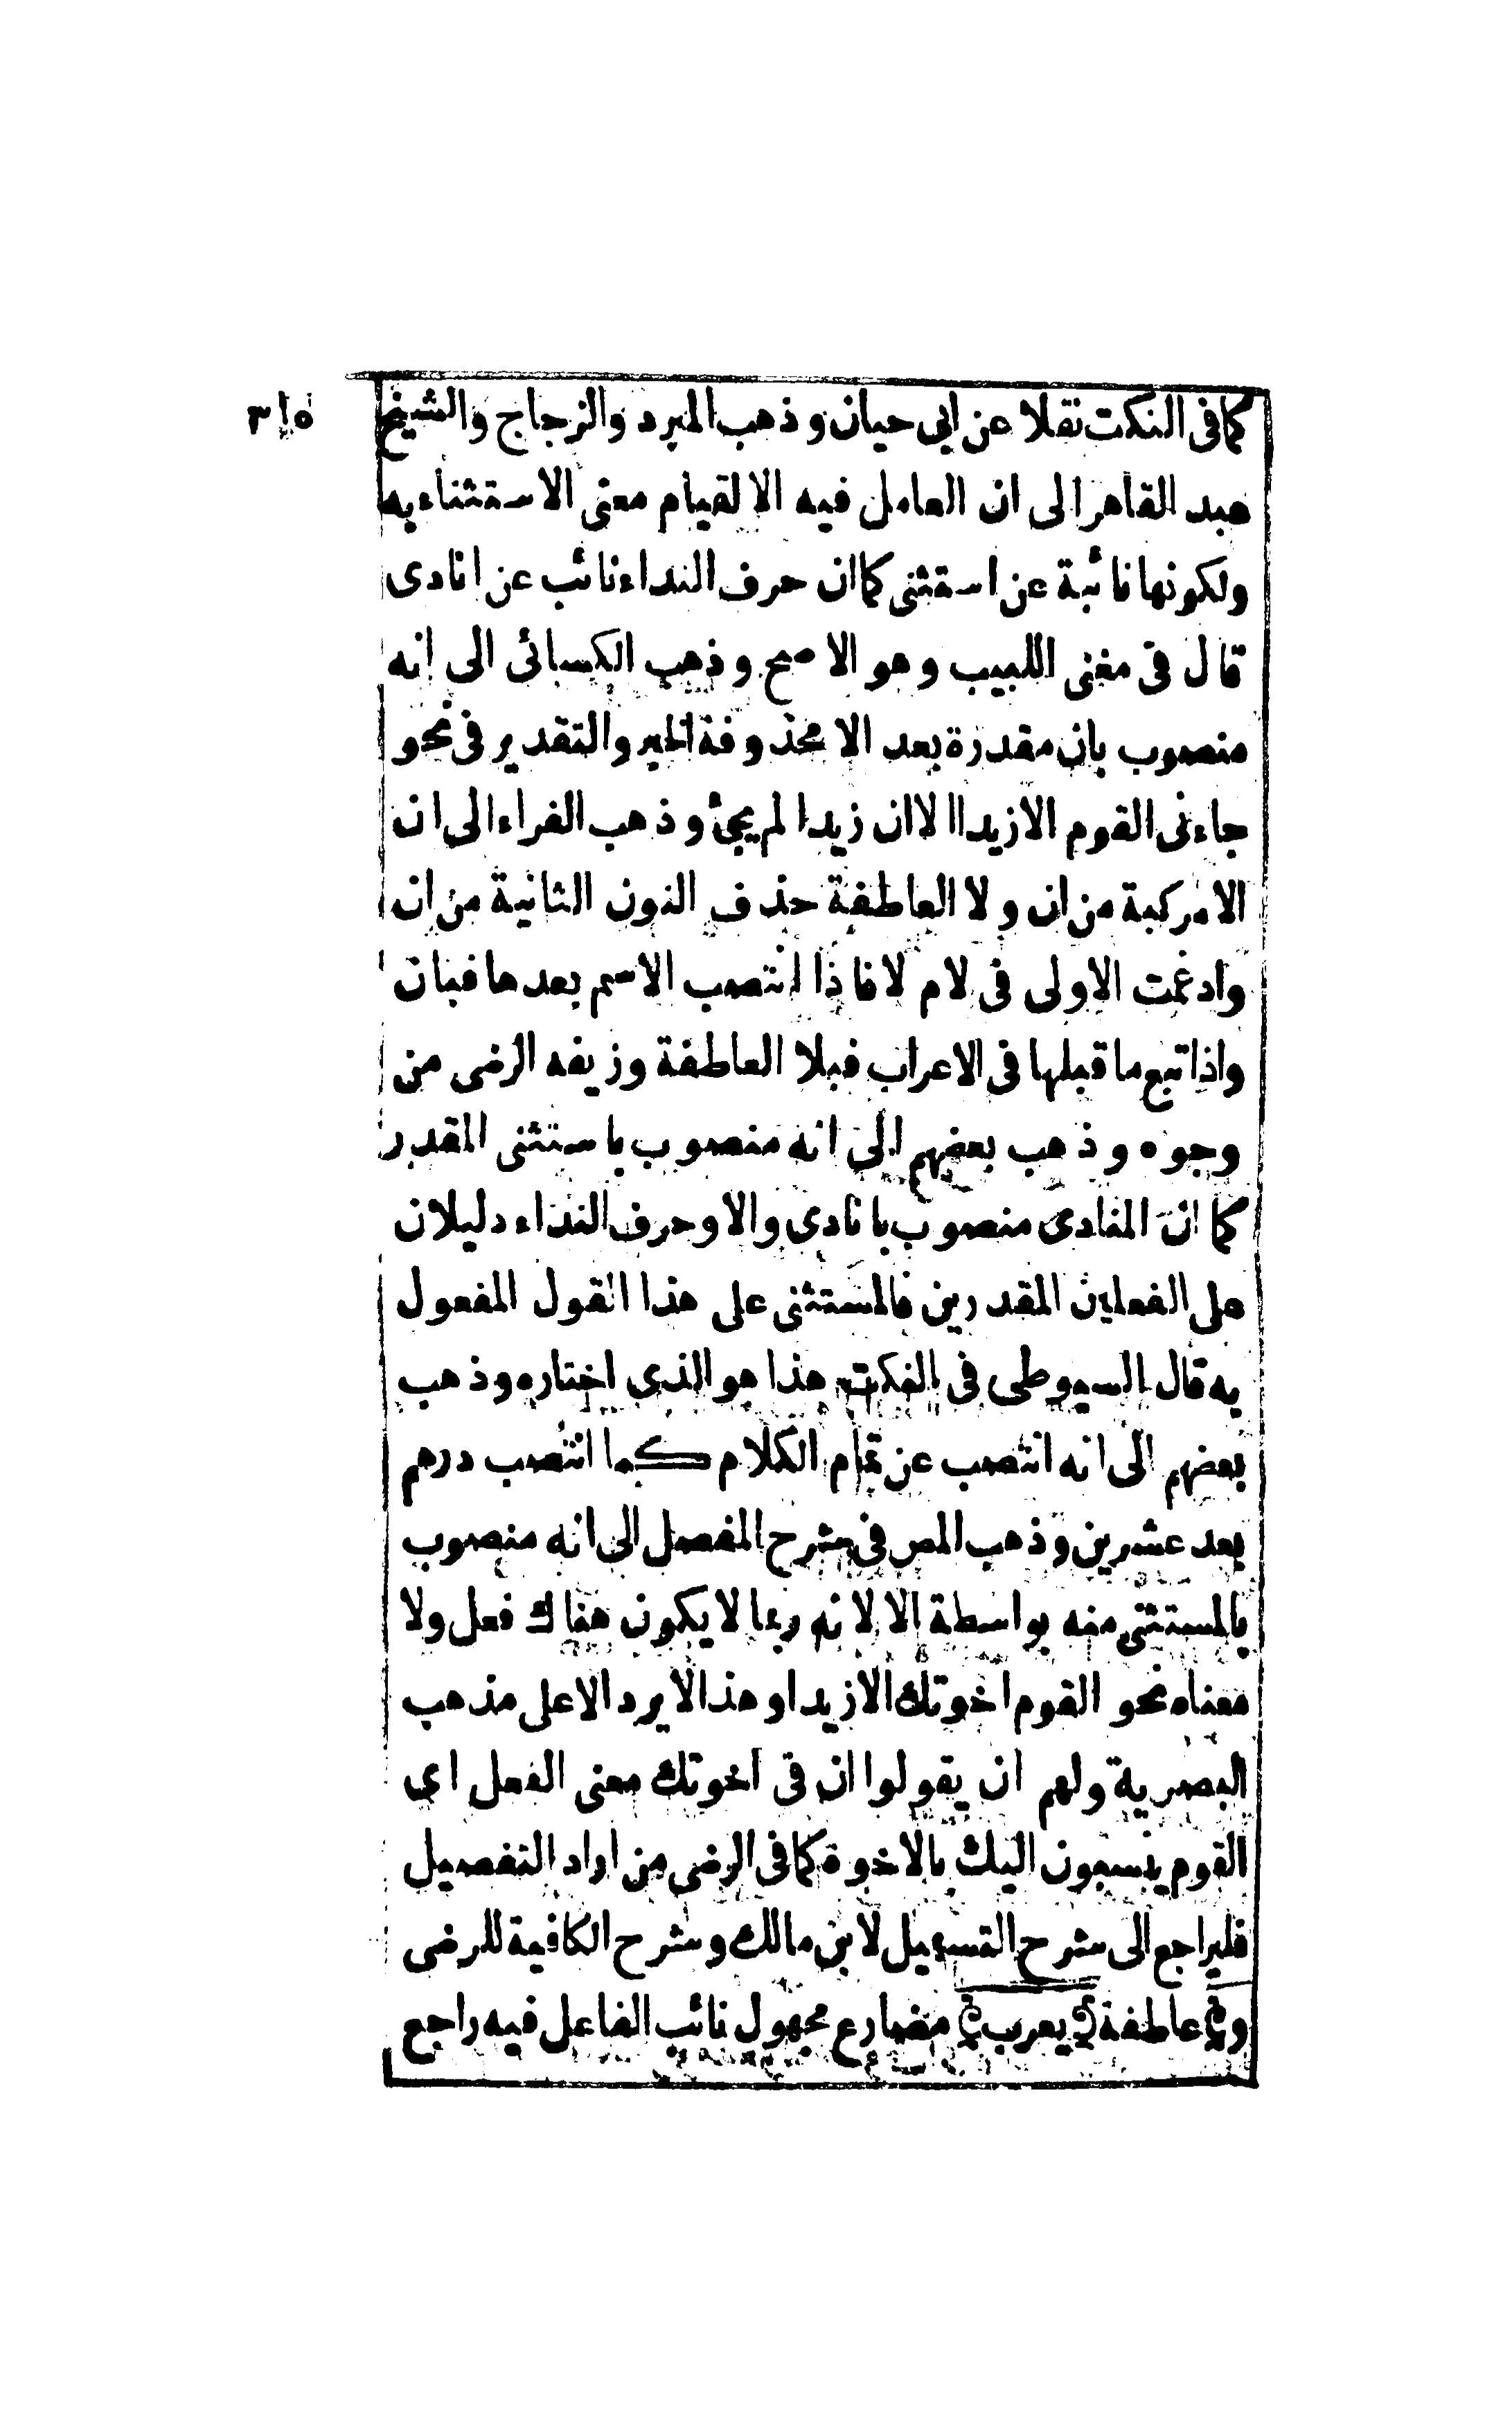 ٣١٥
كما فى النكت نقلا عن ابى حيان وذهب المبرد والزجاج والشيخ
عبد القاهر الى ان العامل فيه الا لقيام معنى الاستثناء به
ولكونها نائبة عن استثنى كما ان حرف النداء نائب عن انادى
قال فى مغنى اللبيب وهو الاصح وذهب الكسائى الى انه
منصوب بان مقدرة بعد الا محذوفة الخبر والتقدير فى نحو
جاءنى القوم الا زيدا الا ان زيدا لم يجئ وذهب الفراء الى ان
الا مركبة من ان ولا العاطفة حذف النون الثانية من ان
وادغمت الاولى فى لام لا فاذا انتصب الاسم بعدها فبان
واذا تبع ما قبلها فى الاعراب فبلا العاطفة وزيفه الرضى من
وجوه وذهب بعضهم الى انه منصوب باستثنى المقدر
كما ان المنادى منصوب بانادى والا وحرف النداء دليلان
على الفعلين المقدرين فالمستثنى على هذا القول المفعول
به قال السيوطى فى النكت هذا هو الذى اختاره وذهب
بعضهم الى انه انتصب عن تمام الكلام كما انتصب درهم
بعد عشرين وذهب المص فى شرح المفصل الى انه منصوب
بالمستثنى منه بواسطة الا لانه ربما لا يكون هناك فعل ولا
معناه نحو القوم اخوتك الا زيدا وهذا لا يرد الا على مذهب
البصرية ولهم ان يقولوا ان فى اخوتك معنى الفعل اى
القوم ينسبون اليك بالاخوة كما فى الرضى من اراد التفصيل
فليراجع الى شرح التسهيل لابن مالك وشرح الكافية للرضى
﴿و﴾ عاطفة ﴿يعرب﴾ مضارع مجهول نائب الفاعل فيه راجع